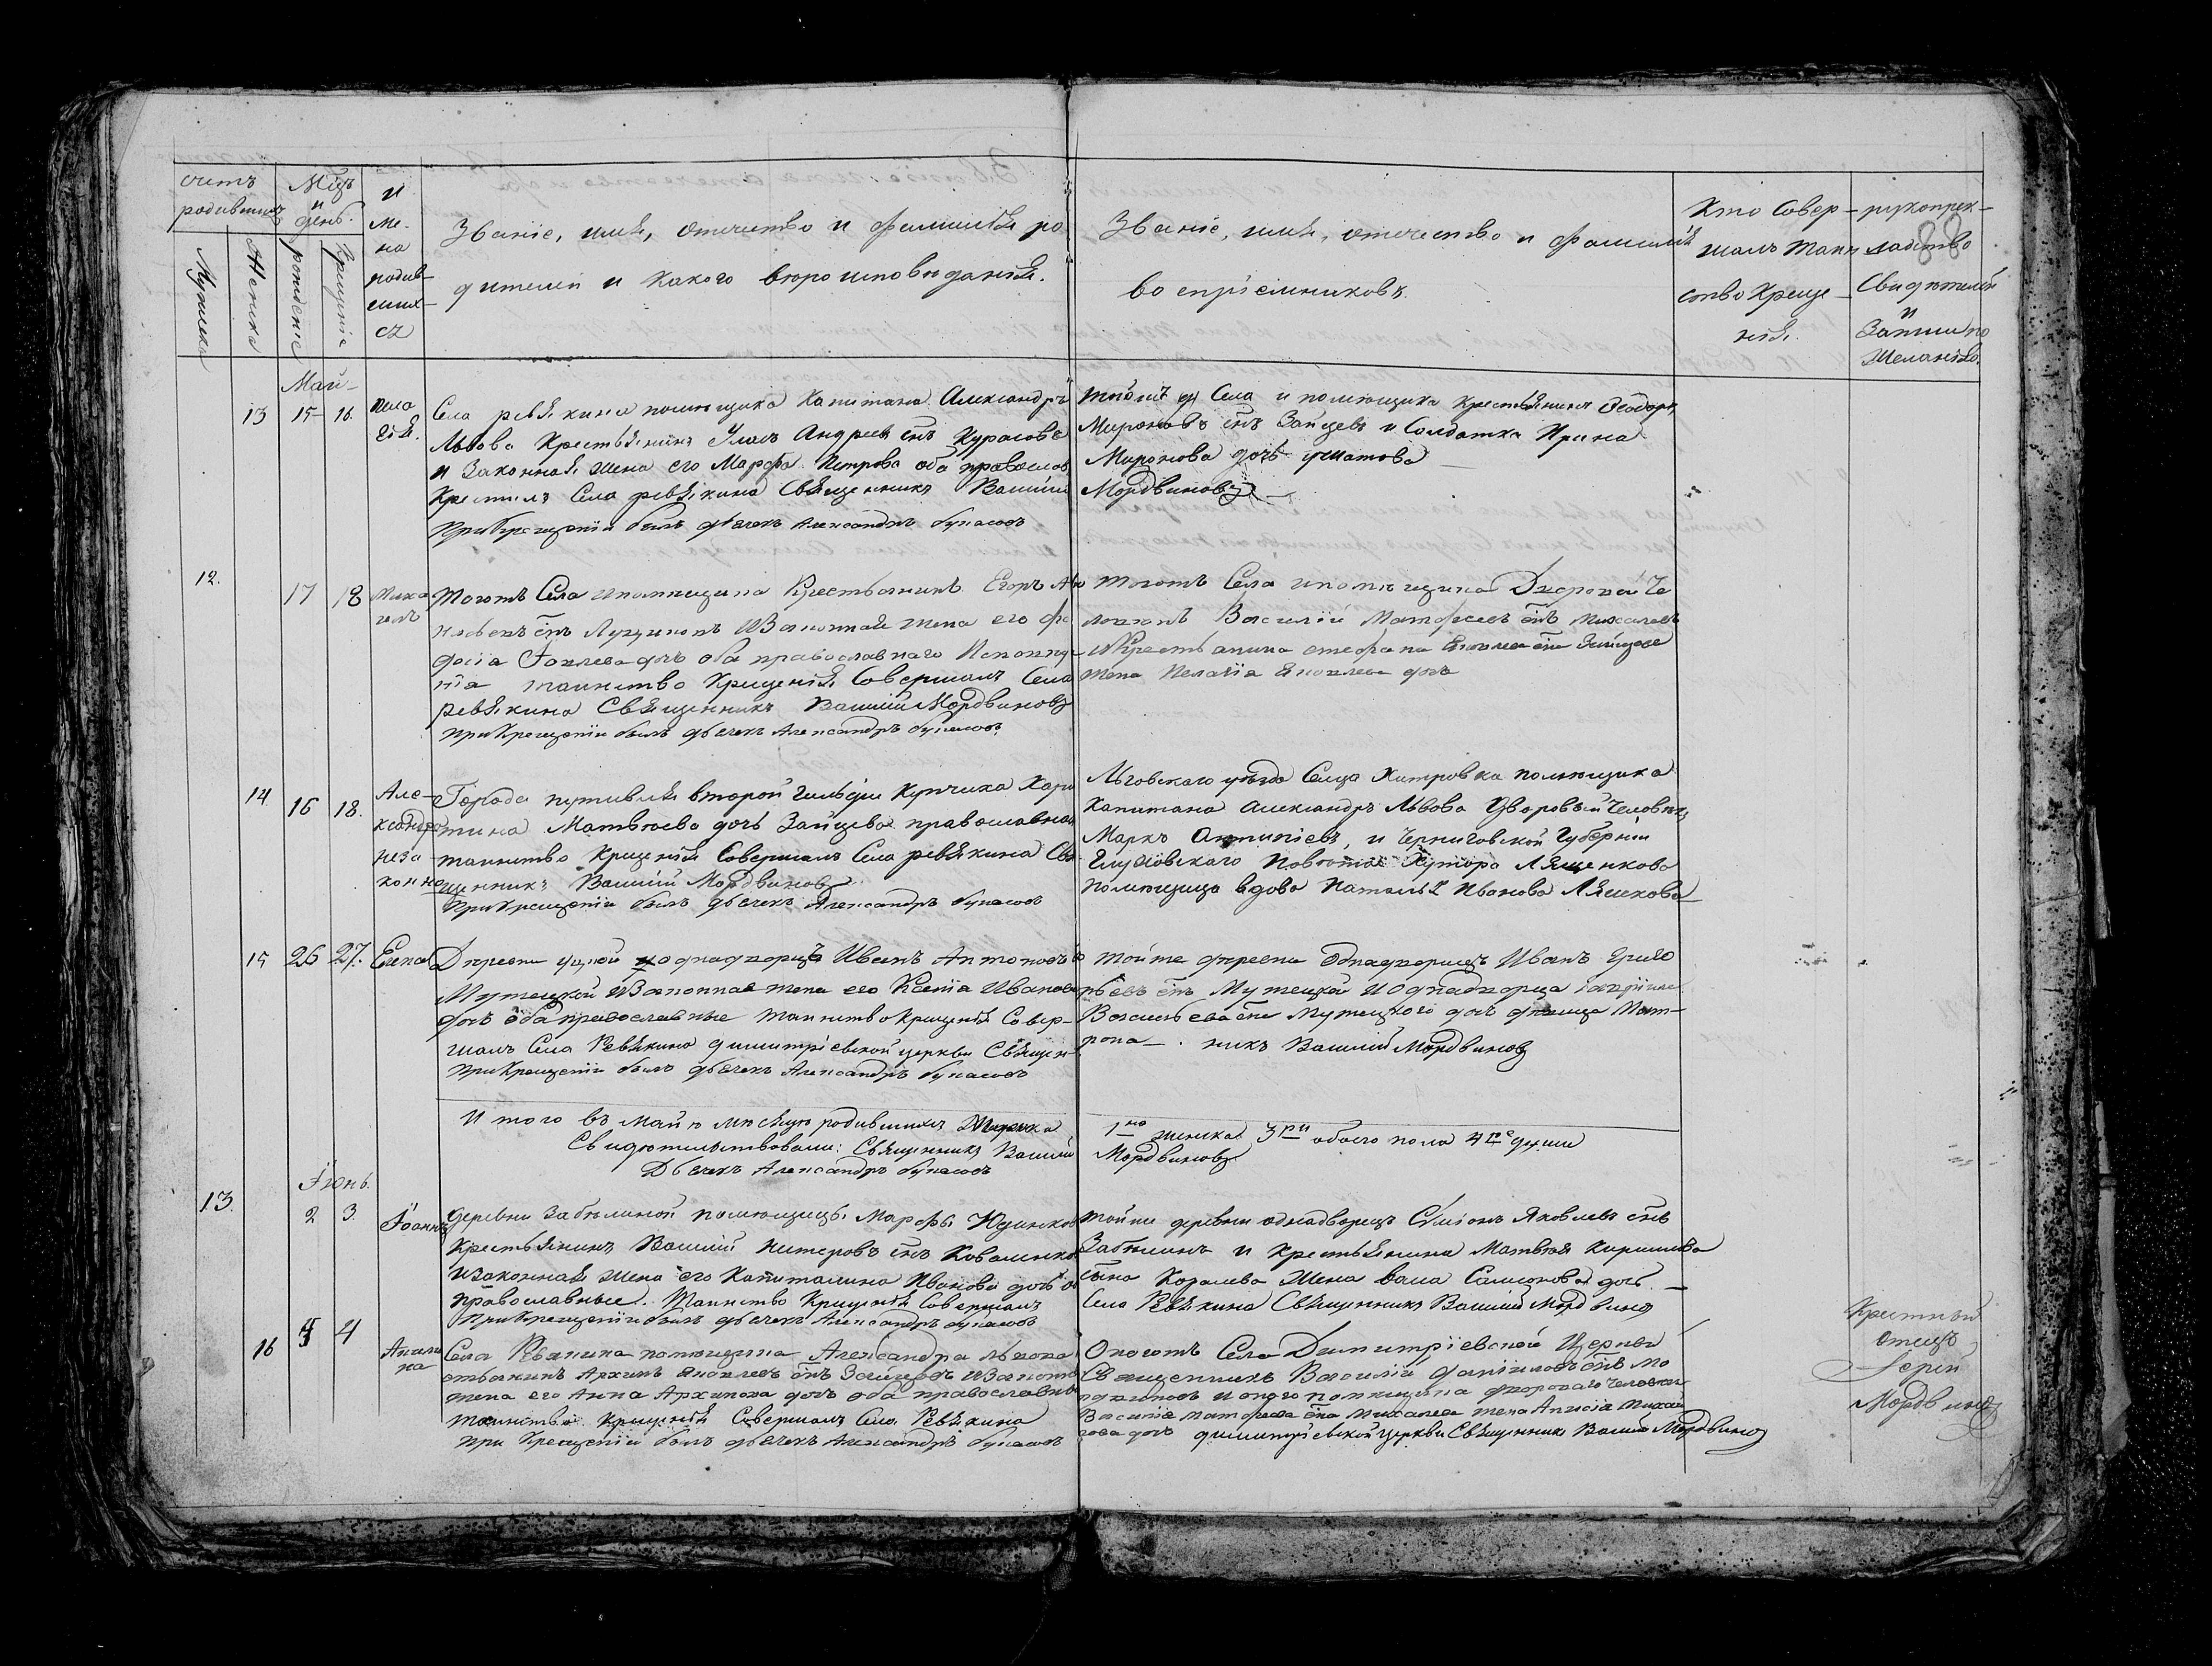 счетъ родившихся
Мужеска
Женска
Мцъ и день.
рожденіе
Крещеніе
и ме- на родив- шихся
Званіе, имя, отечество и фамилія ро
дителей и какого вероисповеданія.
Званіе, имя, отечество и фамилія
воспріемниковъ.
Кто Совер-
шалъ таин
ство Креще-
нія.
рукоприк-
ладство
Свидетелей
и
записи по
желанію.
88
Май
13 15 16. Пела
гея.
Села ревякина помещика Капитана Александръ
Львова Крестьянинъ Андреевъ снъ Курасовъ
и Законная жена его Марфа Петрова оба православ
Крестилъ Села ревякина Священникъ Василій
При Крещеніи былъ дьячекъ Александръ
Села и помещика крестьянинъ Феодоръ
Мироновъ снъ Зайцевъ и Солдатка Ирина
Миронова дочь ушатова
Мордвиновъ
12. 17 18 Миха
илъ
Тогожъ Села и помещика Крестьянинъ Егоръ
снъ Лущиковъ и Законная жена его Фе
досіа Іовлева дочь оба православнаго Исповеда
ніа таинство Крещенія Совершалъ Села
ревякина Священникъ Василій Мордвиновъ
При Крещеніи былъ дьячекъ Александръ
Тогожъ Села и помещика Дворовой Че
ловекъ Василій Матфеевъ снъ Михалевъ
и Крестьянина стефана Яковлева сна Зайцева
жена Пелагіа Яковлева дочь
14. 16 18. Але-
ксандра
неза-
конно
Города путивля второй Гильдіи Купчиха Хари
тина Матвеева дочь Зайцева православная
таинство Крещенія Совершалъ Села ревякина Свя
щенникъ Василій Мордвиновъ
При Крещеніи былъ дьячекъ Александръ
Льговскаго уезда Сельца Хитровка помещика
Капитана Александръ Львова Дворовый Человекъ
Маркъ Антипіевъ, и Черниговской Губерніи
Глуховскаго Повета Хутора Лященкова
помещица вдова Наталья Иванова Ляшкова
15 26 27. Елена
Деревни однодворецъ Иванъ Антоновъ
Мутецкой и Законная жена его Ксенія Иванова
дочь оба православные таинство крещенія Совер-
шалъ Села Ревякина димитріевской церкви Священ-
При Крещеніи былъ дьячекъ Александръ
Тойже деревни Однодворецъ Иванъ Григо
рьевъ снъ Мутецкой и Однодворца
Васильева сна Мутецкого дочь девица Мат-
рона никъ Василій Мордвиновъ
И того въ Майе месяце родившихся Мужеска
1но женска 3ри обоего пола 4ре души
Свидетельствовали: Священникъ Василій
Мордвиновъ
Дьячекъ Александръ
Іюнь.
13. 2 3. Іоаннъ
Деревни Забелиной помещицы Марфы
Крестьянинъ Василій снъ Коваленко
и законная жена его Капиталина Иванова дочь
православные. Таинство Крещенія Совершалъ
При Крещеніи былъ дьячекъ Александръ
тойже деревни однодворецъ Симіонъ Яковлевъ снъ
Забелинъ и крестьянина Матвея Кирилова
сына Королева жена Самсонова дочь
Села Ревякина Священникъ Василій Мордвиновъ
16 4 Акили
на
Села Ревякина помещика Александра львова
стьянинъ Архипъ Яковлевъ снъ Зайцевъ и Законная
жена его Анна Архипова дочь оба православны
таинство крещенія Совершалъ Села Ревякина
При Крещеніи былъ дьячекъ Александръ
Оногожъ Села Димитріевской Церкви
Священникъ Василій Даніиловъ снъ Мо
рдвиновъ и оного помещика дворового человека
Василіа матфеева сна Михалева жена Анисіа Михай
лова дочь димитріевской церкви Священникъ Василій Мордвиновъ
Крестный
отецъ
Іерей
Мордвиновъ